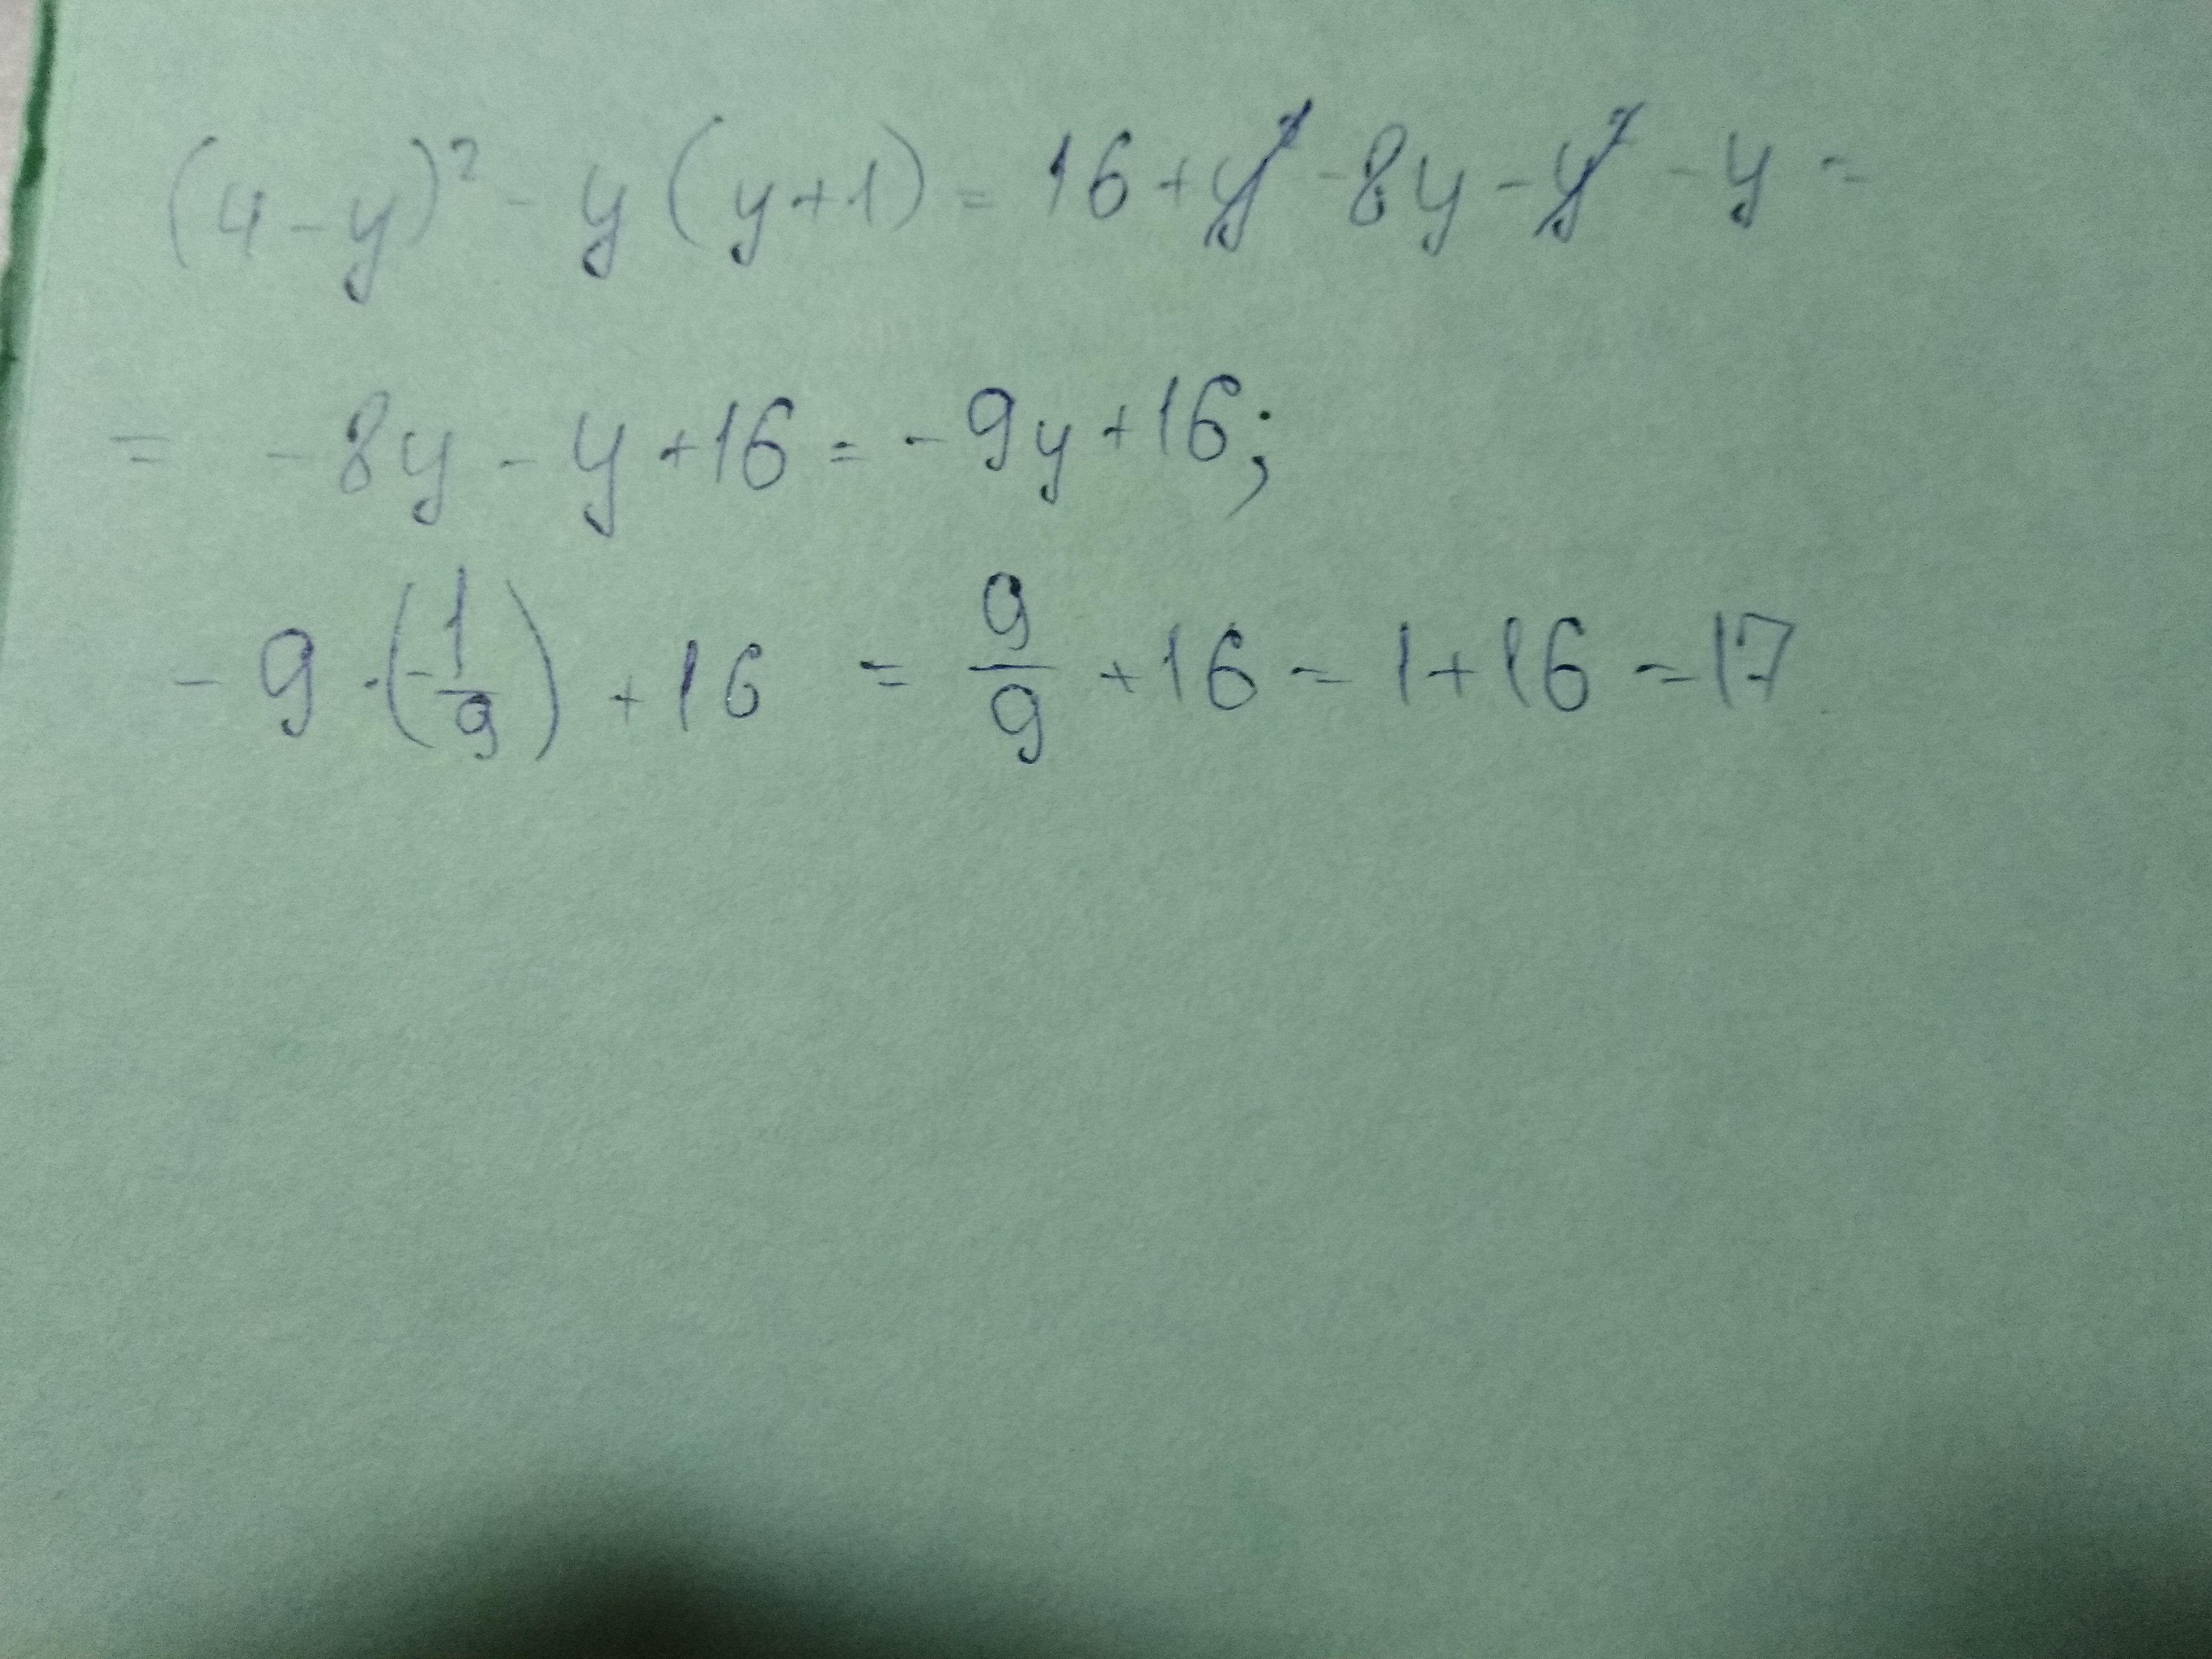 (4-y)² - y(y+1) = 16+y²-8y-y²-y =
= -8y-y+16 = -9y+16;
-9·(-1/9)+16 = 9/9+16 = 1+16 = 17